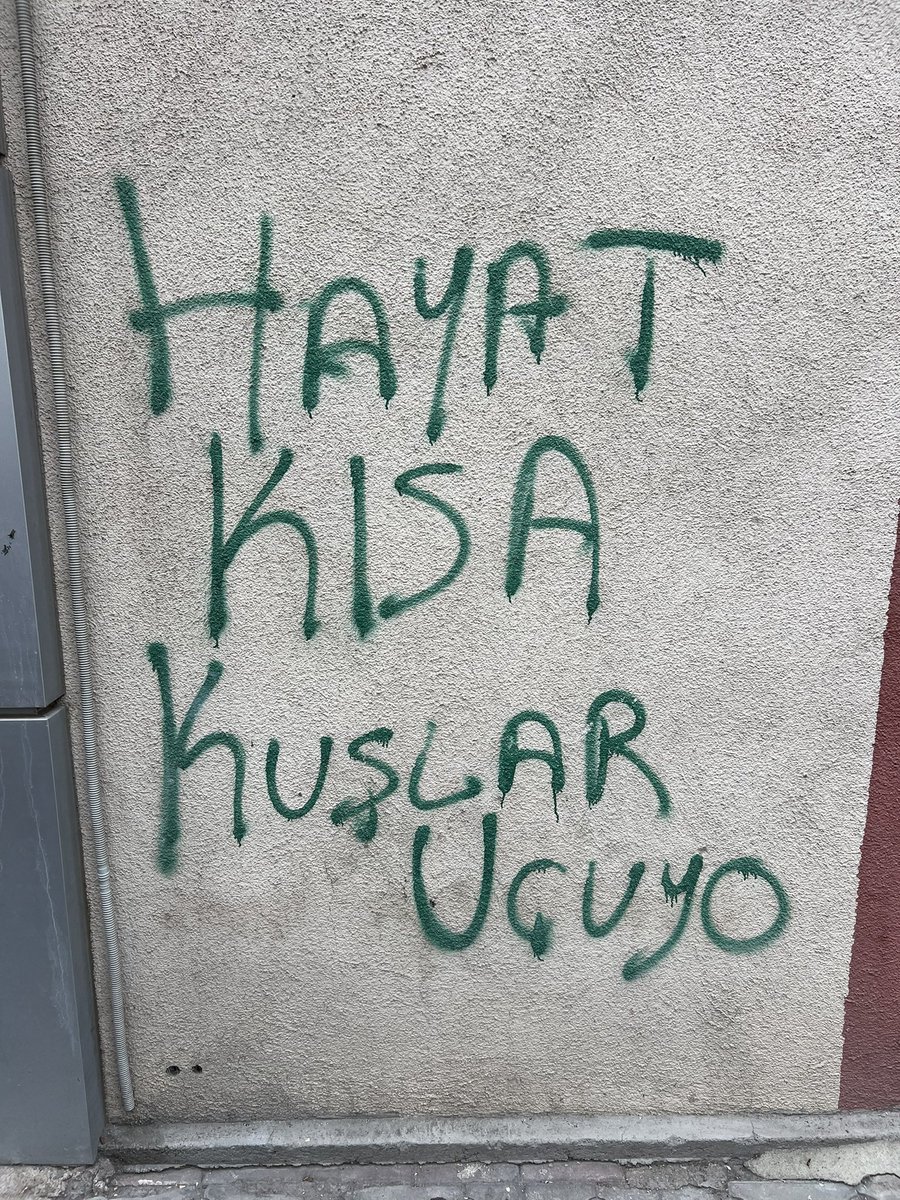 HAYAT
KISA
KUŞLAR
UÇUYO